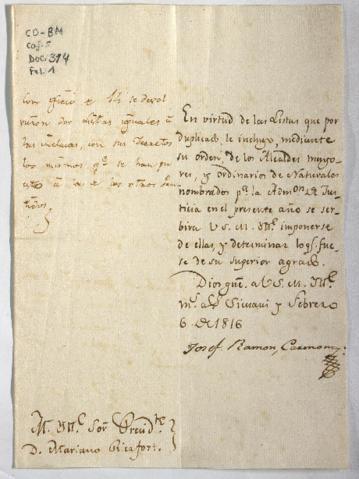 CD-BM
Caj-5
Doc: 314
Fol. 1
Con
se devol
dos listas iguales à
las inclusas, con sus Decretos
los mismos qe. se han pu
esto à las de los otros
En virtud de las Listas que por
duplicado le incluyo, mediante
su orden, de los Alcaldes mayo
res, y ordinarios de Naturales
nombrados pa. la Admon. de Jus
ticia en el presente año se ser
bira V S. M. Ile. imponerse
de ellas, y determinar lo q. fue
se de su superior agrado.
Dios gue. a V S. M. Ile.
ms. as. Sicuani y Febrero
6 de 1816
Josef Ramon Carmona
M. Ile. Sor. Presidte.
D. Mariano Ricafort.